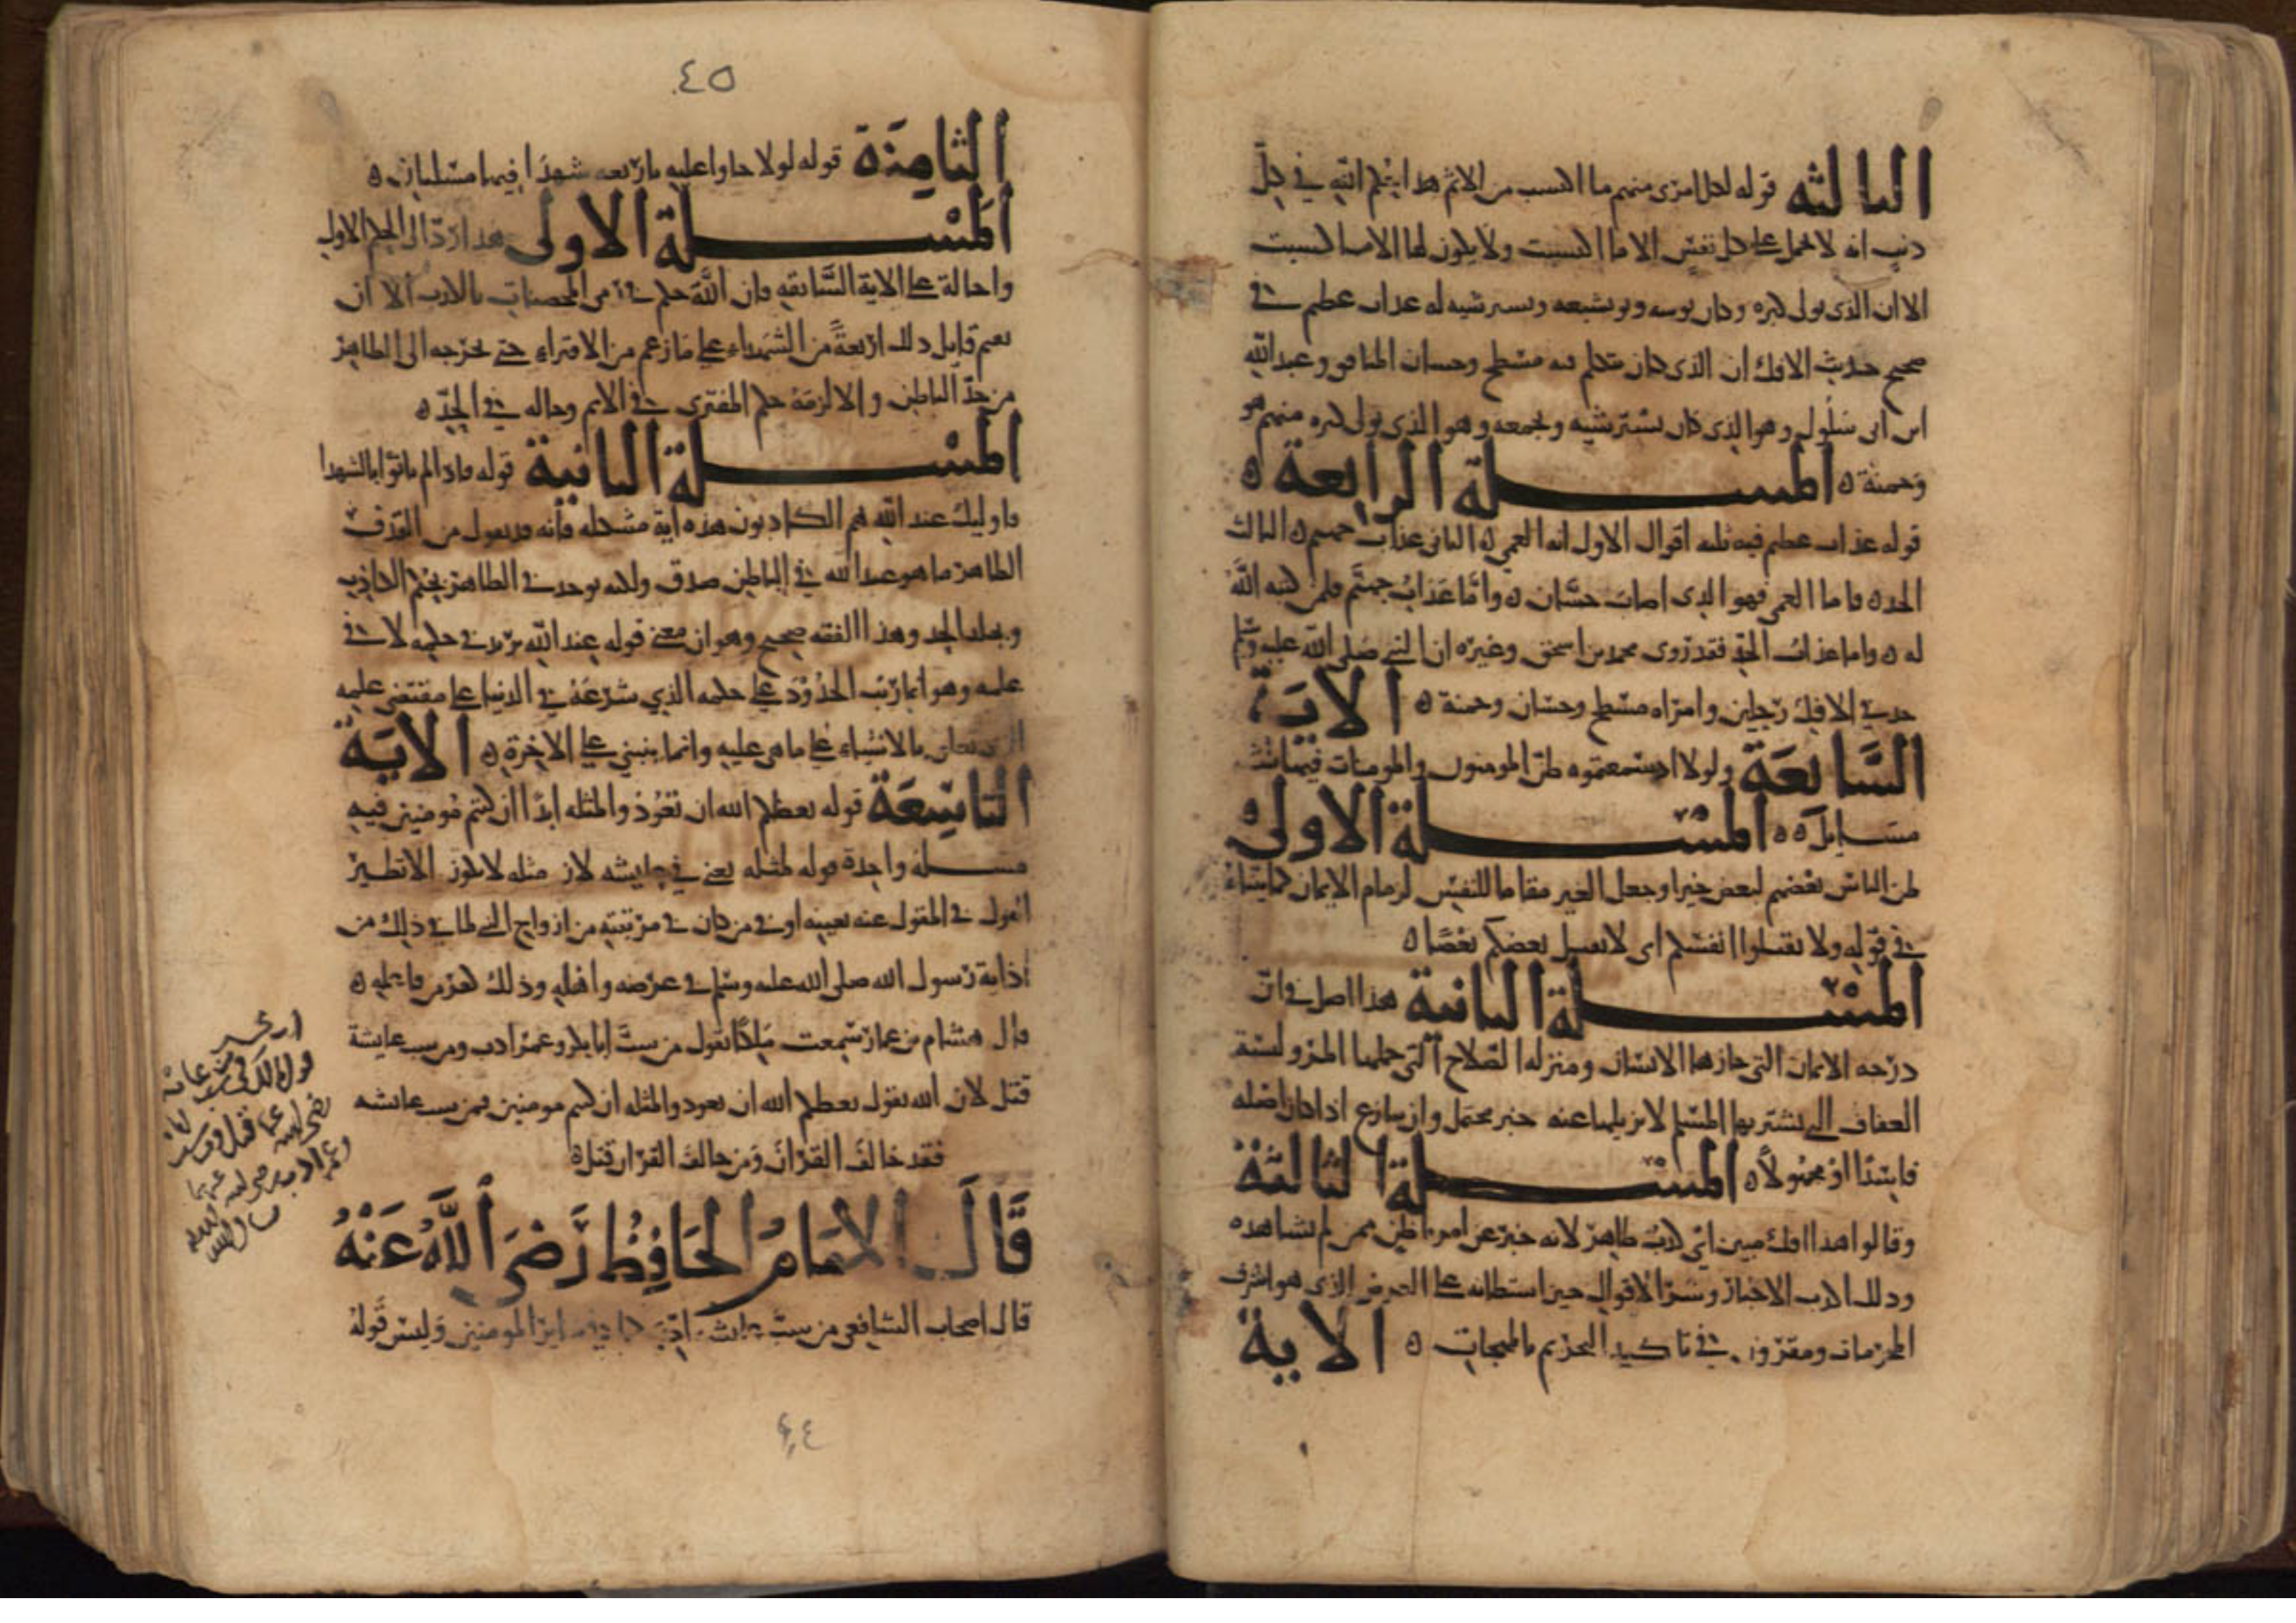 الثالثه قوله لكل امرى منهم ما اكتسب من الاثم هذا حكم الله في كل
ذنب انه لا تحمل على كل نفس الا ما اكتسبت ولا يكون لها الا ما اكتسبت
الا ان الذي تولى كبره وكان يستوشيه له عذاب عظيم في
صحيح حديث الافك ان الذي كان يتكلم فيه مسطح وحسان المنافق وعبد الله
ابن ابي سلول وهو الذي كان يستوشيه ويجمعه وهو الذي تولى كبره منهم هو
وحمنة ه المسلة الرابعة ه
قوله عذاب عظيم فيه ثلثه اقوال الاول انه العمى ه الثاني عذاب جهنم ه الثالث
الحد ه فاما العمى فهو الذي اصاب حسان ه واما عذاب جهنم فلمن كتبه الله
له ه واما عذاب الحد فقد روى محمد بن اسحق وغيره ان النبي صلى الله عليه وسلم
حد في الافك رجلين وامراه مسطح وحسان وحمنة ه الاية
السابعة ولولا اذ سمعتموه ظن المومنون والمومنات فيها ثلث
مسايل ه ه المسلة الاولى ه
ظن الناس بعضهم لبعض خيرا وجعل الغير مقاما للنفس لزمام الايمان كما بيناه
في قوله ولا تقتلوا انفسكم اى لا يقتل بعضكم بعضا ه
المسلة الثانية هذا اصل في ان
درجه الايمان التي حازها الانسان ومنزله الصلاح التي حلها المرء ولبسة
العفاف التي تستر بها المسلم لا يزيلها عنه خبر محتمل وان شاع اذا كان اصله
فاسدا او مجهولا ه المسلة الثالثة
وقالوا هذا افك مبين اي كذب ظاهر لانه خبر عن امر باطن ممن لم يشاهده
وذلك اكذب الاخبار وشر الاقوال حيث استطاله على العرض الذي هو اشرف
المحرمات ومقرون في تاكيد التحريم بالمهجات ه الاية
٤٥
الثامنة قوله لولا جاوا عليه باربعه شهدا فيها مسلتان ه
المسلة الاولى هذا رد الى الحكم الاول
واحالة على الاية السابقه فان الله حكم في رمي المحصنات بالكذب الا ان
يقيم قايل ذلك اربعة من الشهداء على ما زعم من الافتراء حتى يخرجه الى الظاهر
من حد الباطن والا لزمه حكم المفترى في الاثم وحاله في الحد ه
المسلة الثانية قوله فاذ لم ياتوا بالشهدا
فاوليك عند الله هم الكاذبون هذه اية مشكله فانه قد يقول من القذف
الظاهر ما هو عند الله في الباطن صدق ولكنه يوخذ في الظاهر بحكم الكاذب
ويجلد الحد وهذا الفقه صحيح وهو ان معنى قوله عند الله يريد في حكمه لا في
علمه وهو انما رتب الحدود على حكمه الذي شرعه في الدنيا على مقتضى علمه
الذي تعلق بالاشياء على ما هي عليه وانما ينبني على الاخرة ه الاية
التاسعة قوله يعظكم الله ان تعودوا لمثله ابدا ان كنتم مومنين فيه
مسلة واحدة قوله لمثله يعني في عايشه لان مثله لا يكون الا نظير
القول في المقول عنه بعينه او في من كان في مرتبته من ازواج النبي لما في ذلك من
اذاية رسول الله صلى الله عليه وسلم في عرضه واهله وذلك كفر من فاعله ه
قال هشام بن عمار سمعت ملكا يقول من سب ابا بكر وعمر ادب ومن سب عايشة
قتل لان الله يقول يعظكم الله ان تعودوا لمثله ان كنتم مومنين فمن سب عايشه
فقد خالف القران ومن خالف القران قتل ه
قال الامام الحافظ رضي الله عنه
قال اصحاب الشافعي من سب عايشه ادب كما في ساير المومنين وليس قوله
قول مالك في من سب عايشة
رضي الله عنها قتل
٤٤